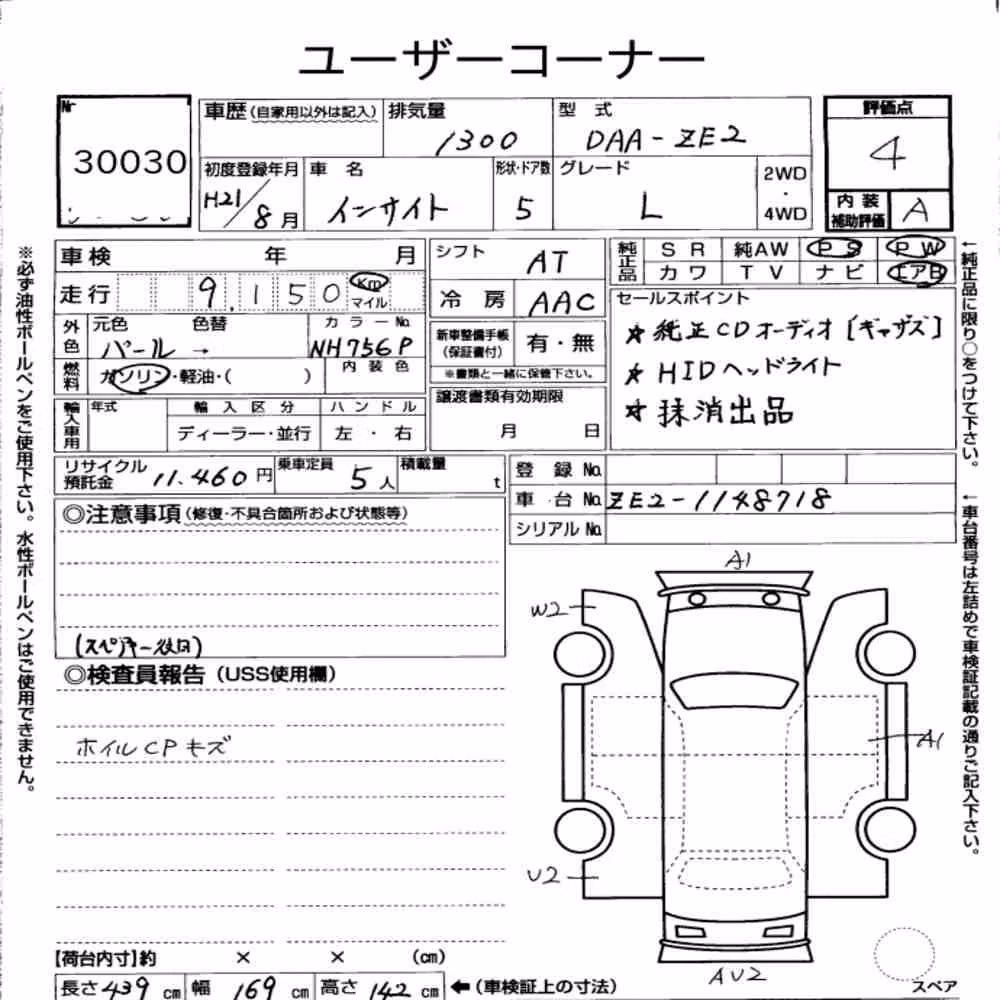 ユーザーコーナー
Nr 30030
車歴(自家用以外は記入) 排気量 1300 型式 DAA-ZE2
初度登録年月 H21/8月 車名 インサイト 形状・ドア数 5 グレード L 2WD・4WD
評価点 4
内装補助評価 A
車検 年 月
走行 9,150 Km マイル
シフト AT
冷房 AAC
純正品 SR 純AW PS PW
カワ TV ナビ エアB
外色 元色 パール → 色替 カラーNo. NH756P
燃料 ガソリン・軽油・( ) 内装色
新車整備手帳(保証書付) 有・無
※書類と一緒に保管下さい。
セールスポイント
★純正CDオーディオ[ギャザズ]
★HIDヘッドライト
★抹消出品
輸入車用 年式 輸入区分 ハンドル
ディーラー・並行 左・右
譲渡書類有効期限
月 日
リサイクル預託金 11.460円 乗車定員 5人 積載量 t
登録No.
車台No. ZE2-1148718
シリアルNo.
◎注意事項(修復・不具合箇所および状態等)
◎検査員報告(USS使用欄)
ホイルCPキズ
A1
W2
A1
U2
AU2
スペア
【荷台内寸】約 × × (cm)
長さ439cm 幅169cm 高さ142cm ←(車検証上の寸法)
※必ず油性ボールペンをご使用下さい。水性ボールペンはご使用できません。
←純正品に限り○をつけて下さい。
←車台番号は左詰めで車検証記載の通りご記入下さい。